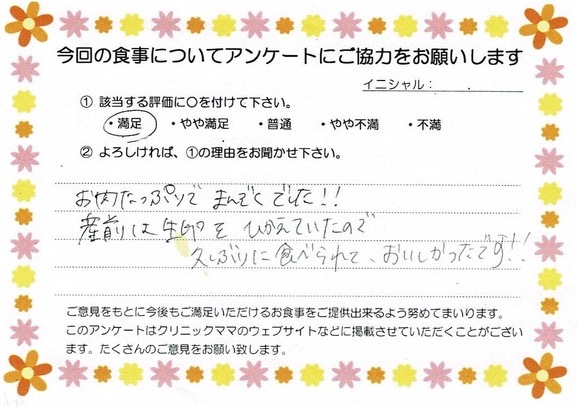 今回の食事についてアンケートにご協力をお願いします
イニシャル： .
① 該当する評価に〇を付けて下さい。
・満足 ・やや満足 ・普通 ・やや不満 ・不満
② よろしければ、①の理由をお聞かせ下さい。
お肉たっぷりで まんぞくでした!!
産前は生卵を ひかえていたので
久しぶりに食べられて、おいしかったです!!
ご意見をもとに今後もご満足いただけるお食事をご提供出来るよう努めてまいります。
このアンケートはクリニックママのウェブサイトなどに掲載させていただくことがござい
ます。たくさんのご意見をお願い致します。